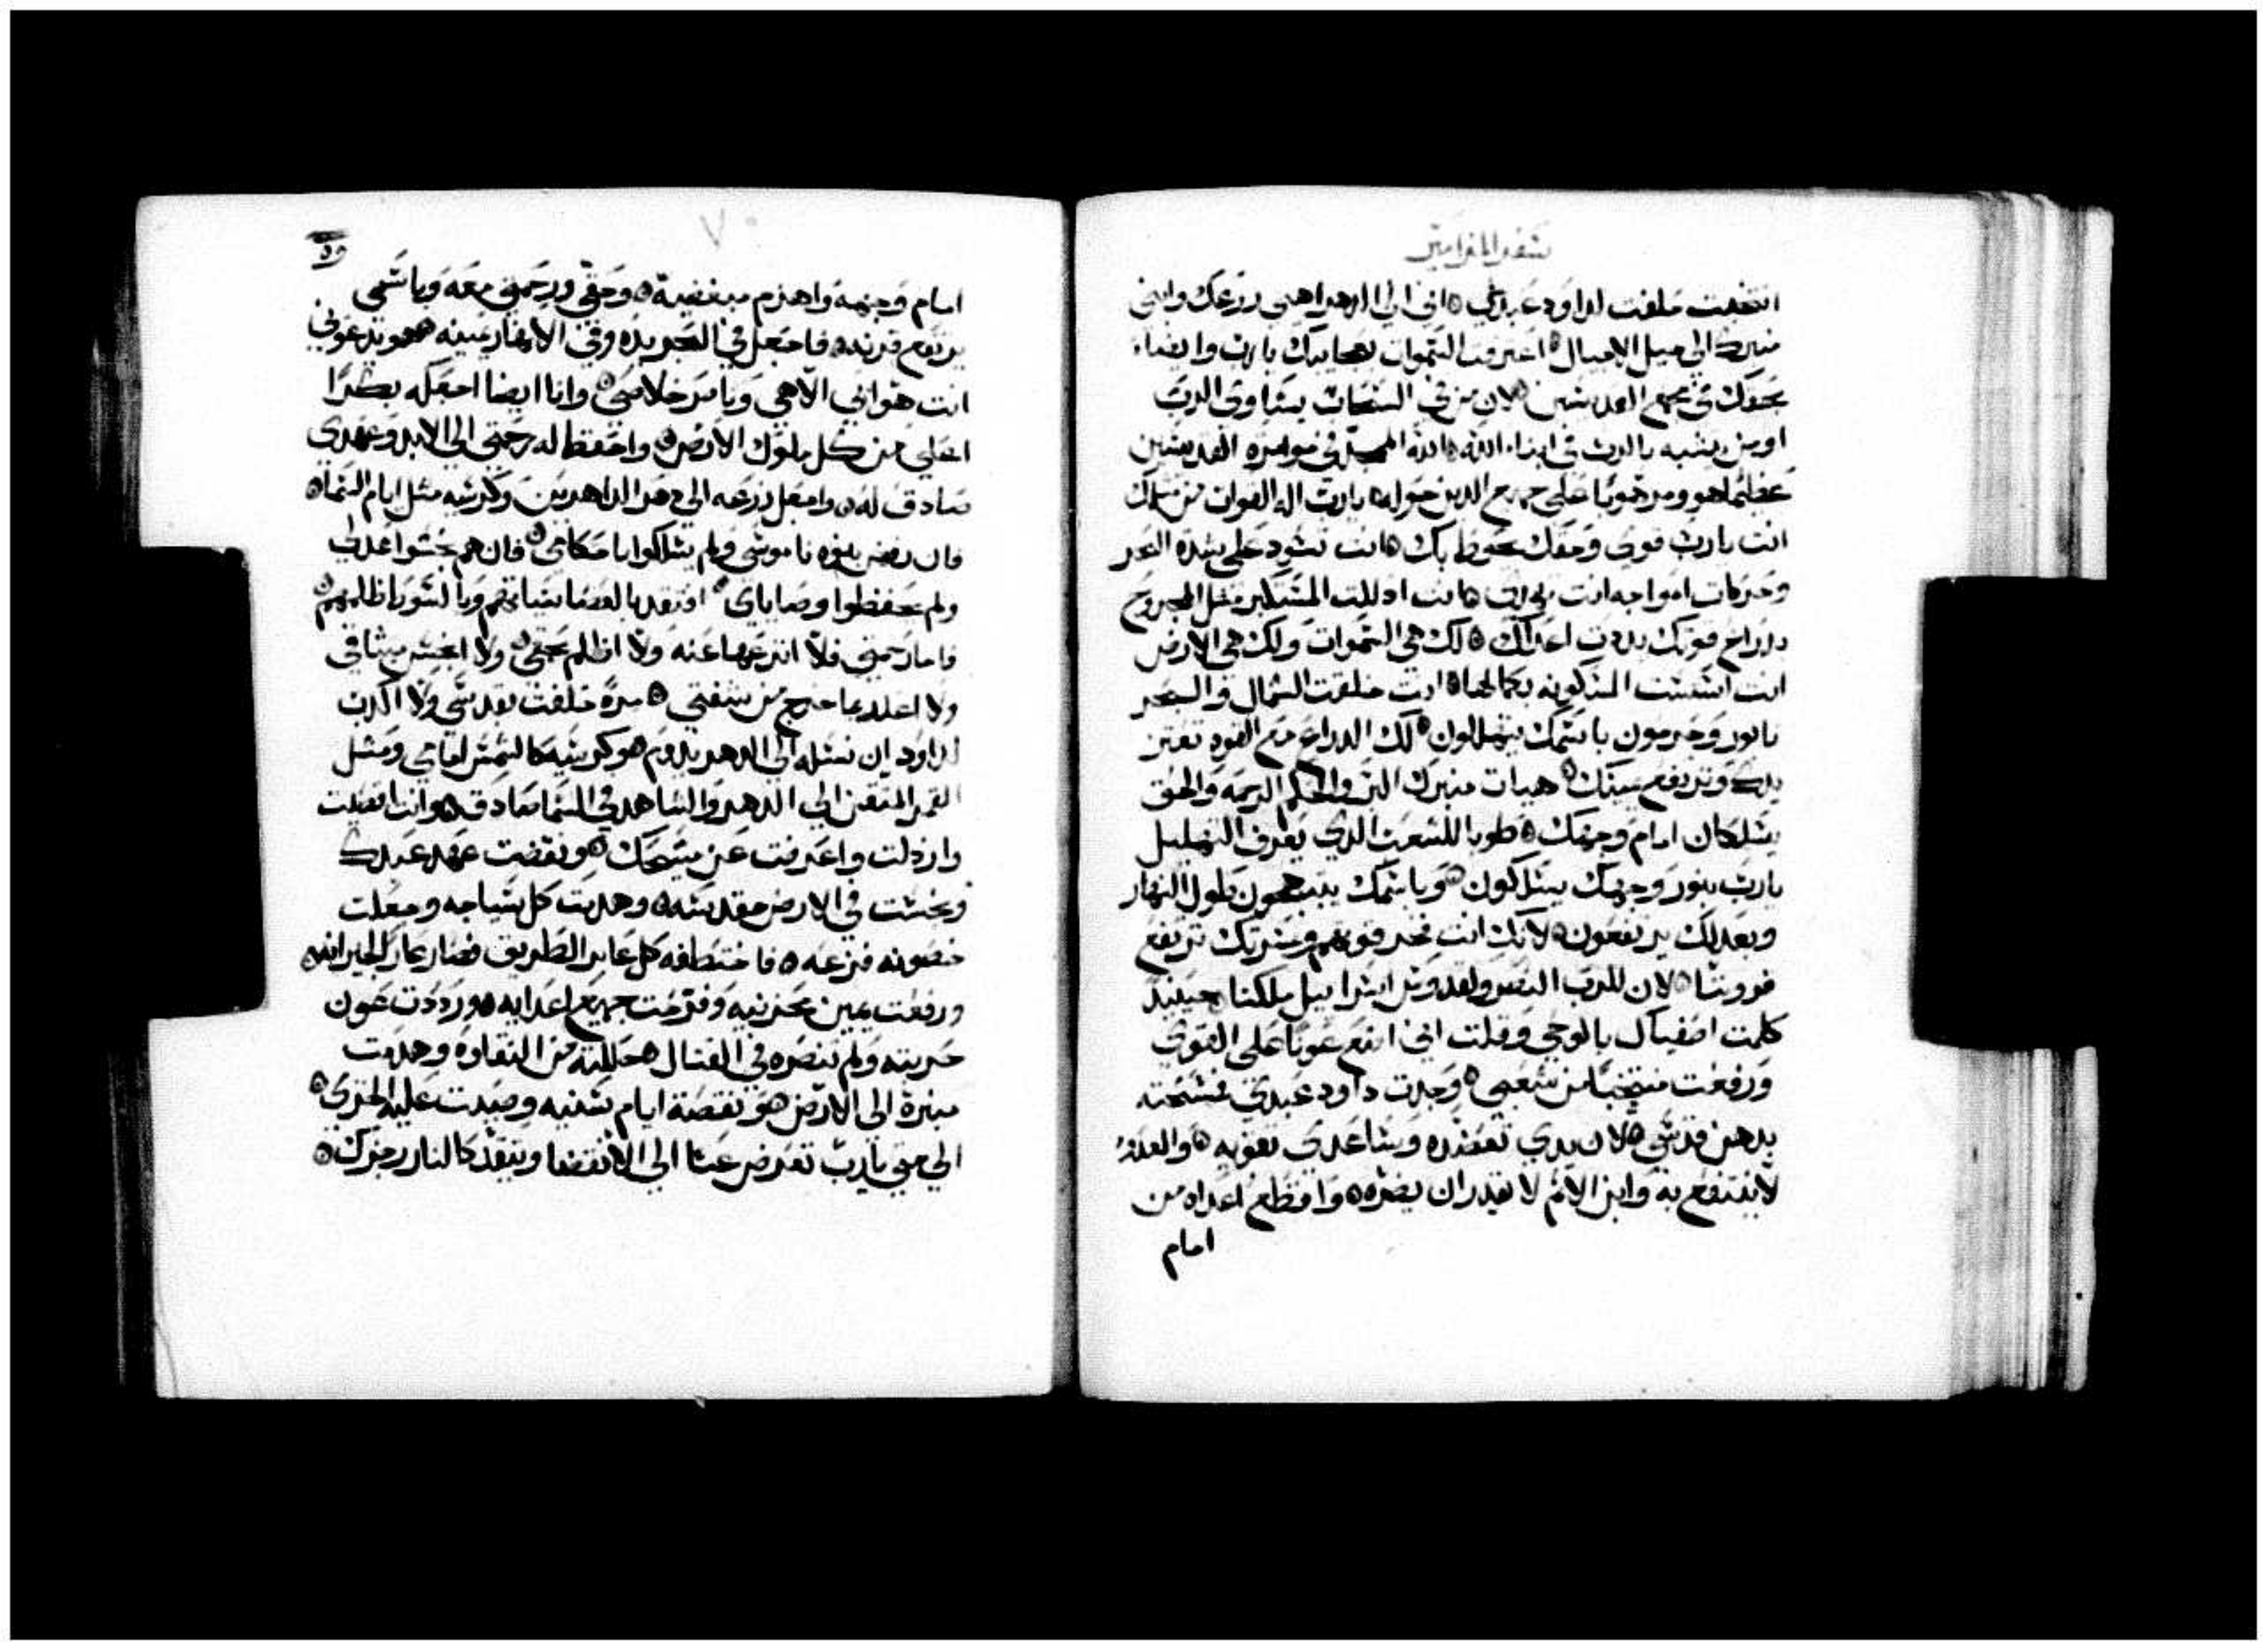 سفر المزامير
انتخبت حلفت لداود عبدي اني الي الدهر اهيي زرعك وابني
منبرك الي جيل الاجيال اعترفت السموات بعجايبك يا رب وايضاء
بحقك في مجمع القديسين لان من في السحاب يساوي الرب
او من يشبه بالرب في ابناء الله الله الممجد في موامرة القديسين
عظيما هو ومرهوبا علي جميع الذين حوله يا رب اله القوات من مثلك
انت يا رب قوي وحقك يحوط بك انت تسود علي شدة البحر
وحركات امواجه انت انت اذللت المتكبر مثل المجروح
بذراع قوتك بددت اعداك لك هي السموات ولك هي الارض
انت اسست المسكونة بكمالها انت خلقت الشمال والبحر
تابور وحرمون باسمك يتهللون لك الدراع مع القوة تعتز
يدك وترتفع يمينك هيات منبرك البر والحكم الرحمة والحق
يسلكان امام وجهك طوبا للشعب الذي يعرف التهليل
يا رب بنور وجهك يسلكون وباسمك يبتهجون طول النهار
وبعدلك يرتفعون لانك انت فخر قوتهم وبمسرتك ترتفع
قروننا لان للرب النصر ولقدوس اسرائيل ملكنا حينيد
كلمت اصفياك بالوحي وقلت اني اضع عونا علي القوي
ورفعت منتخبا من شعبي وجدت داود عبدي فمسحته
بدهن قدسي لان يدي تعضده وساعدي تقويه والعدو
لا ينتفع به وابن الاثم لا يقدر ان يضره واقطع اعداه من
امام
٧٠
٥٩
امام وجهه واهزم مبغضيه وحقي ورحمتي معه وباسمي
يرتفع قرنه فاجعل في البحر يده وفي الانهار يمينه هو يدعوني
انت هو ابي الاهي وناصر خلاصي وانا ايضا اجعله بكرا
اعلي من كل ملوك الارض واحفظ له رحمتي الي الابد وعهدي
صادق له واجعل زرعه الي دهر الداهرين وكرسيه مثل ايام السما
فان رفض بنوه ناموسي ولم يسلكوا باحكامي فان هم نجسوا عدلي
ولم يحفظوا وصاياي افتقد بالعصا سياتهم وبالسوط ظلمهم
فاما رحمتي فلا انزعها عنه ولا اظلم بحقي ولا انجس ميثاقي
ولا اعدد ما خرج من شفتي مرة حلفت بقدسي ولا اكدب
لداود ان نسله الي الدهر يدوم هو كرسيه كالشمس امامي ومثل
القمر المتقن الي الدهر والشاهد في السما صادق وانت اقصيت
وارذلت واعرضت عن مسيحك ونقضت عهد عبدك
ونجست في الارض مقدسه وهدمت كل سياجه وجعلت
حصونه فزعه فاختطفه كل عابر الطريق فصار عارا لجيرانه
ورفعت يمين محزنيه وفرحت جميع اعدايه ورددت عون
حربته ولم تنصره في القتال حللته من النقاوه وهدمت
منبره الي الارض هو نقصت ايام سنيه وصببت عليه الخزي
الي متي يا رب تعرض عنا الي الانقضا ويتقد كالنار رجزك